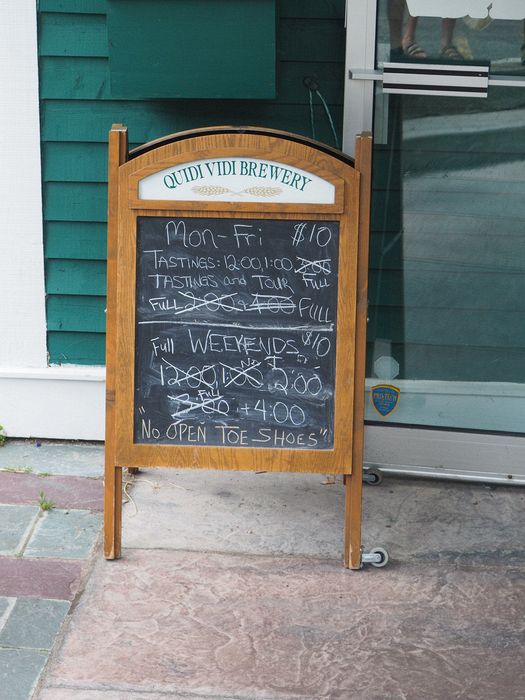 QUIDI VIDI BREWERY
Mon-Fri $10
TASTINGS: 12:00, 1:00, 3:00
TASTINGS and TOUR FULL
FULL 2:00 & 4:00 FULL
Full WEEKENDS $10
12:00, 1:00, 2:00
FULL
3:00 + 4:00
"NO OPEN TOE SHOES"